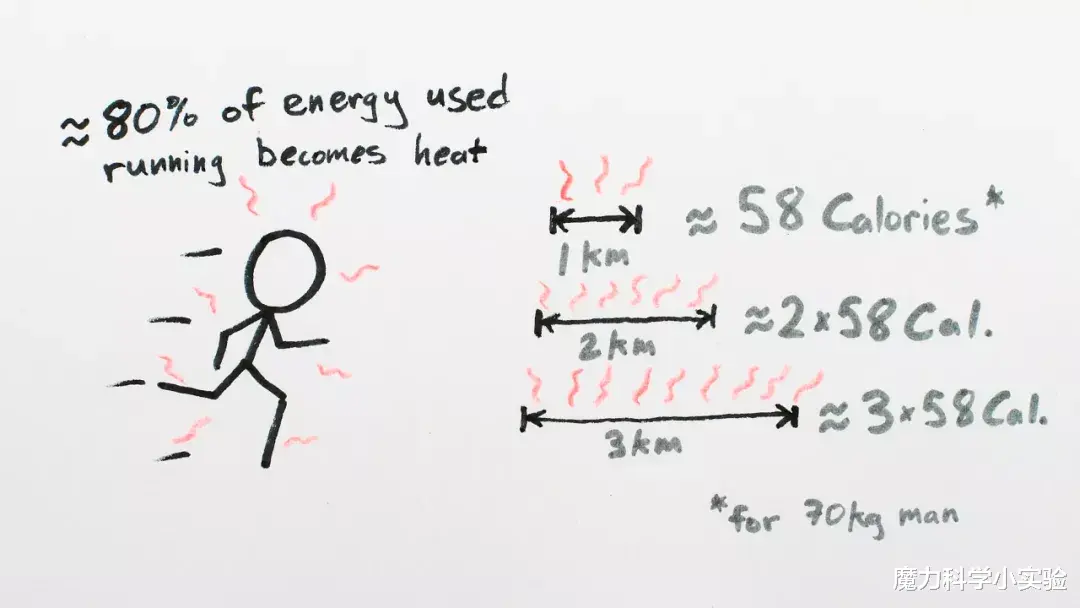 ≈80% of energy used
running becomes heat
1 km
≈ 58 Calories*
2 km
≈2×58 Cal.
3 km
≈3×58 Cal.
*for 70kg man
魔力科学小实验